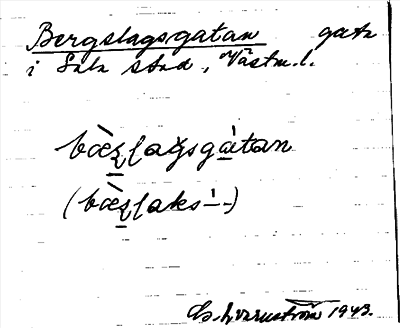 Bergslagsgatan gata
i Sala stad, Västm. l.
bæ̀ʂlagsgátan
(bæ̀ʂlaks ́--)
1943.